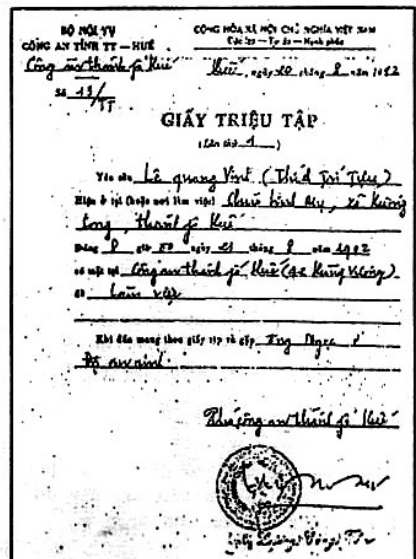 BỘ NỘI VỤ
CÔNG AN TỈNH TT — HUẾ
Công an thành phố Huế
Số 13/TT
CỘNG HÒA XÃ HỘI CHỦ NGHĨA VIỆT NAM
Độc lập — Tự do — Hạnh phúc
Huế, ngày 20 tháng 8 năm
GIẤY TRIỆU TẬP
(Lần thứ 1)
Yêu cầu Lê quang Vinh (Thích Trí Tựu)
Hiện ở tại (hoặc nơi làm việc) Chùa
long, thành phố Huế
Đúng 8 giờ ngày 21 tháng 8 năm
có mặt tại Công an thành phố Huế (42 Hùng Vương)
để Làm việc
Khi đến mang theo giấy này và gặp ông Ngọc ở
Đội an ninh.
công an thành phố Huế